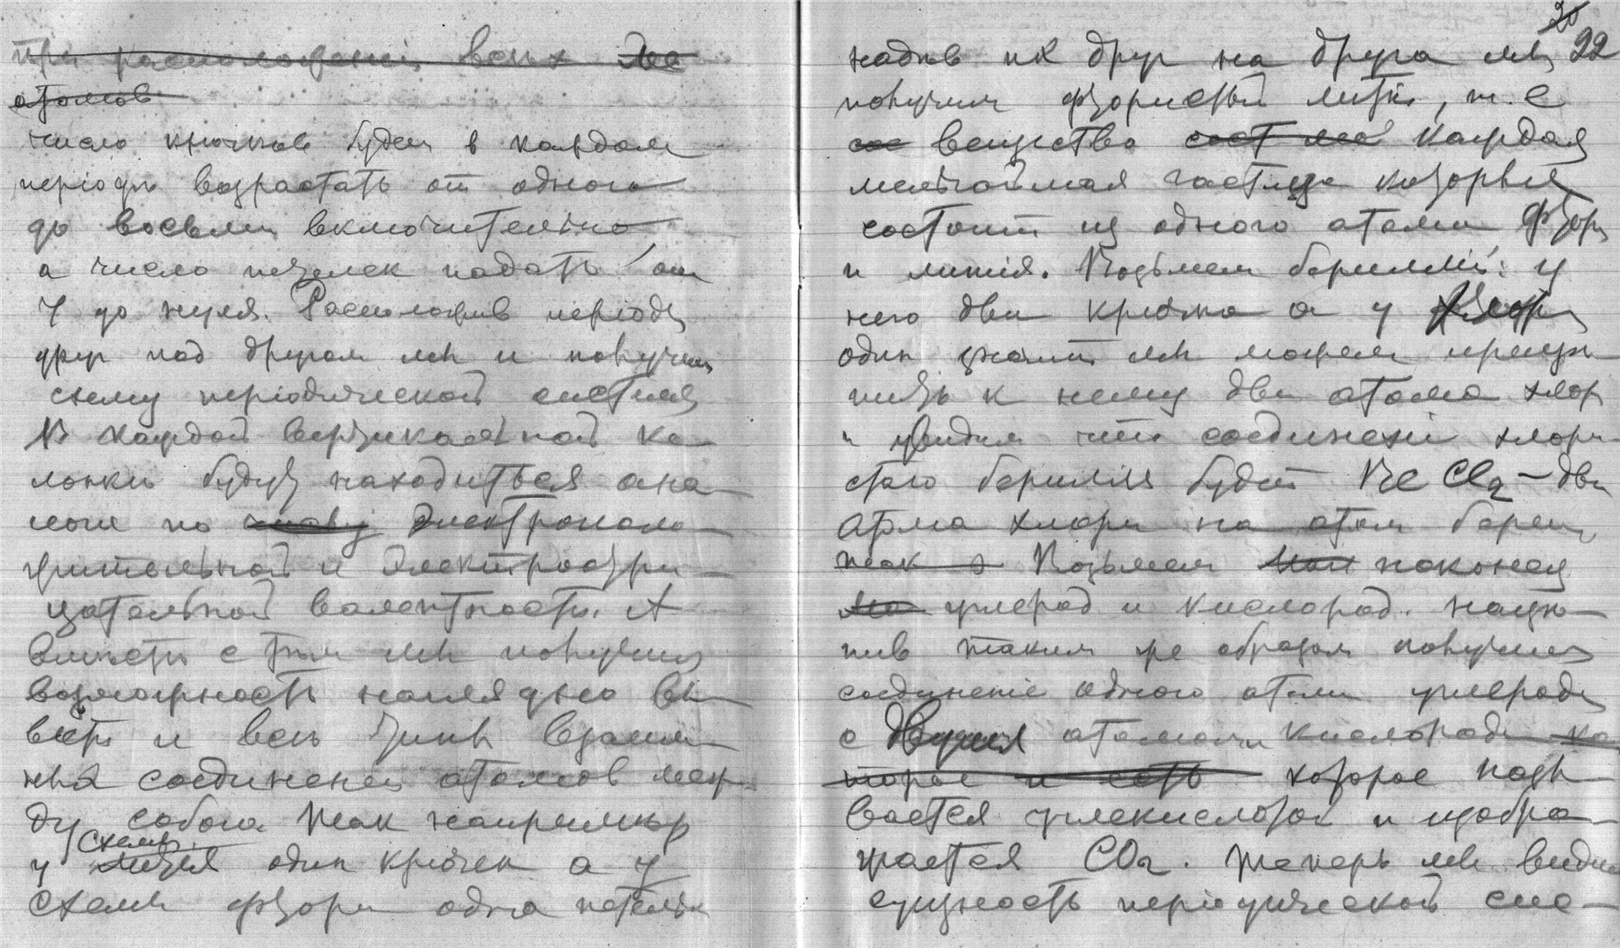 при расположении всех
атомов
число крючков будет в каждом
периоде возрастать от одного
до восьми включительно
а число петелек падать от
7 до нуля. Расположив периоды
друг под другом мы и получим
схему періодической системы
В каждой вертикальной ко-
лонке будут находиться ана-
логи по электрополо-
жительной и электроотри-
цательной валентности. А
вместе с тем мы получим
возможность наглядно вы-
вести и весь цикл взаим-
ных соединений атомов меж-
ду собою так например
у схемы лития один крючек а у
схемы фтора одна петелька
20 22
надев их друг на друга мы
получим фтористый литий, т. е
вещество каждая
мельчайшая частица которого
состоит из одного атома фтора
и литія. Возьмем бериллий: у
него два крючка а у хлора
один значит мы можем прице-
пить к нему два атома хлора
и увидим что соединеніе хлори-
стаго бериллія будет Be Cl2 – два
атома хлора на атом берил,
так Возьмем наконец
углерод и кислород. Нацеп-
пив таким же образом получим
соединеніе одного атома углерода
с двумя атомами кислорода ко-
торое и есть которое назы-
вается углекислотой и изобра-
жается CO2. Теперь мы видим
сущность періодической сис-